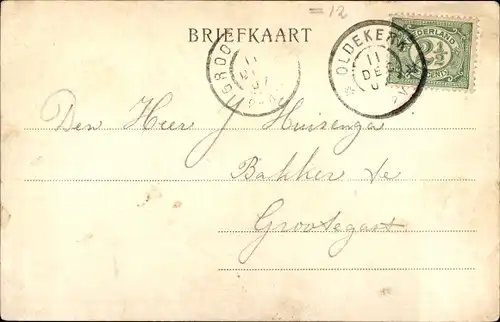 = 12
BRIEFKAART
OLDEKERK
11
DE
NEDERLAND
2½
CENT
GROO
11
Den Heer J Huizenga
Bakker te
Grootegast